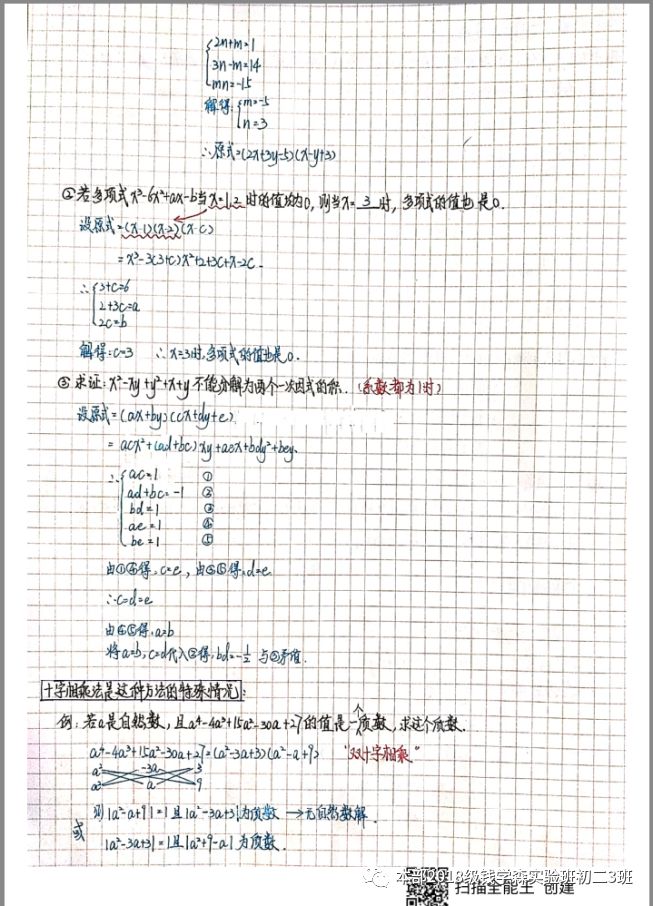 2n+m=1
3n-m=14
mn=-15
解得: m=-5
n=3
∴原式=(2x+3y-5)(x-y+3)
②若多项式x³-6x²+ax-b当x=1,2时的值均为0,则当x=3时,多项式的值也是0.
设原式=(x-1)(x-2)(x-c)
=x³-3(3+c)x²+2+3c+x-2c.
∴ 3+c=6
2+3c=a
2c=b
解得:c=3 ∴x=3时,多项式的值也是0.
③求证:x²-xy+y²+x+y不能分解为两个一次因式的积.(系数都为1时)
设原式=(ax+by)(cx+dy+e)
=acx²+(ad+bc)xy+aex+bdy²+bey.
∴ ac=1 ①
ad+bc=-1 ②
bd=1 ③
ae=1 ④
be=1 ⑤
由①④得,c=e,由③⑤得,d=e
∴c=d=e
由④⑤得,a=b
将a=b,c=d代入②得,bd=-1/2 与③矛盾.
十字相乘法是这种方法的特殊情况:
例:若a是自然数,且a⁴-4a³+15a²-30a+27的值是一个质数,求这个质数.
a⁴-4a³+15a²-30a+27=(a²-3a+3)(a²-a+9) "双十字相乘"
a² -3a 3
a² a 9
则|a²-a+9|=1且|a²-3a+3|为质数 →无自然数解.
或 |a²-3a+3|=1且|a²+9-a|为质数.
本部2018级钱学森实验班初二3班
扫描全能王 创建